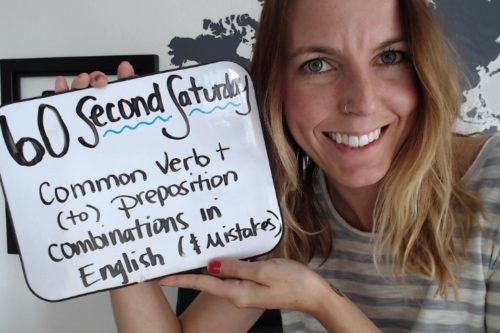 60 Second Saturday
Common Verb +
(to) Preposition
combinations in
English (& Mistakes)